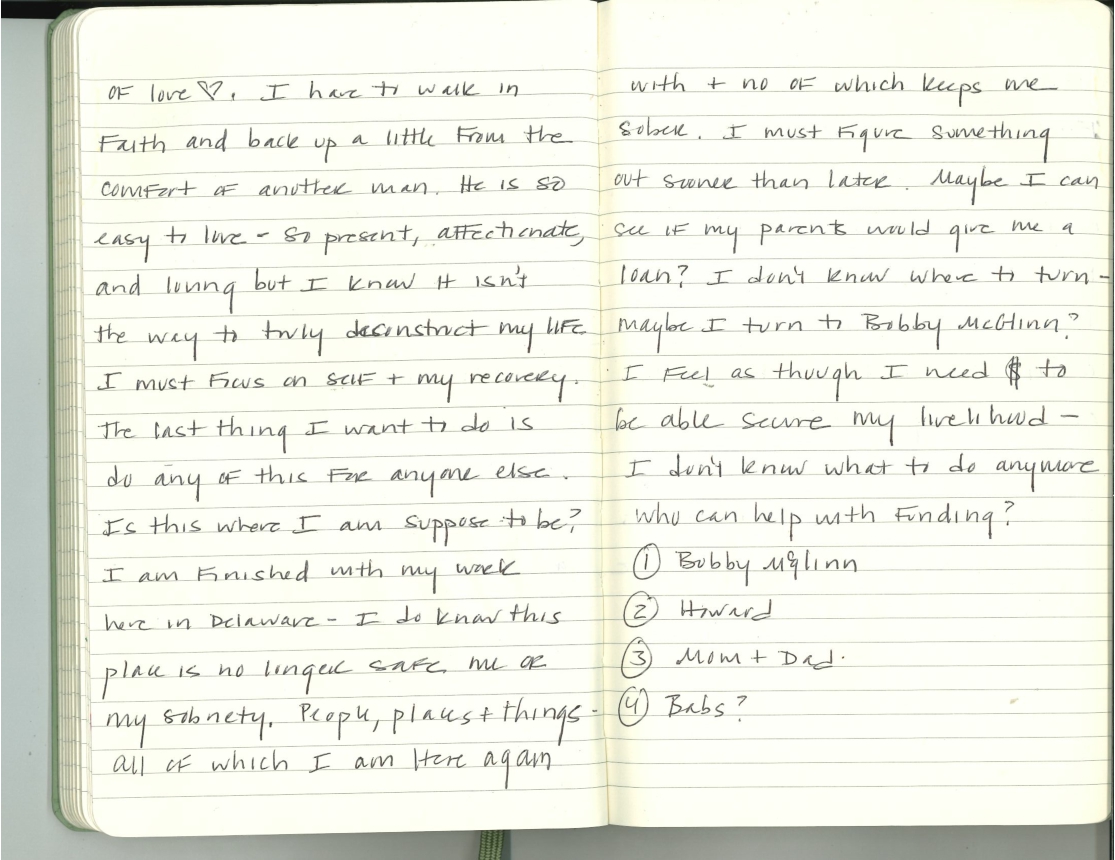 OF love ♡. I have to walk in
Faith and back up a little From the
comfort OF another man. He is so
easy to love - so present, affectionate,
and loving but I know it isn't
the way to truly deconstruct my life
I must Focus on self + my recovery.
The last thing I want to do is
do any OF this For anyone else.
Is this where I am suppose to be?
I am Finished with my work
here in Delaware - I do know this
place is no longer safe me or
my sobriety. People, places + things -
all OF which I am Here again
with + no OF which keeps me
sober. I must Figure something
out sooner than later. Maybe I can
see iF my parents would give me a
loan? I don't know where to turn -
maybe I turn to Bobby McGlinn?
I Feel as though I need $ to
be able secure my livelihood -
I don't know what to do anymore
Who can help with Funding?
① Bobby McGlinn
② Howard
③ Mom + Dad.
④ Babs?